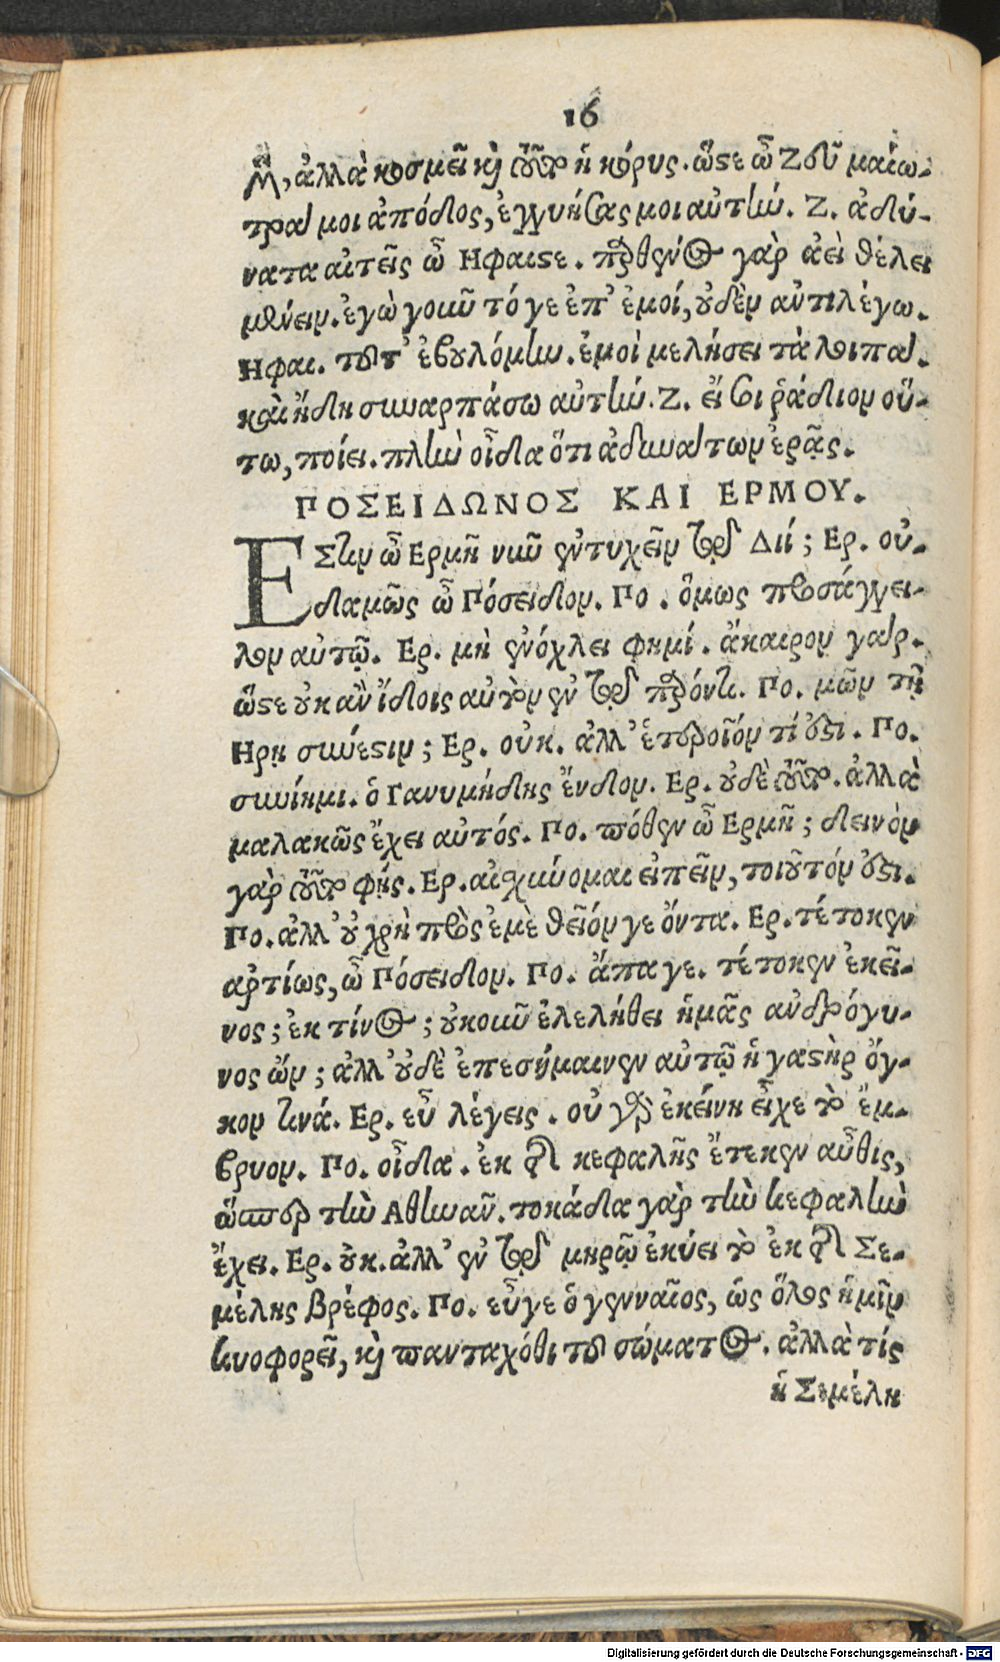 16
μὲν, ἀλλὰ κοσμεῖ καὶ τοῦτο ἡ κόρυς. ὥστε ὦ Ζεῦ μαίω-
τρά μοι ἀπόδος, ἐγγυήσας μοι αὐτὴν. Ζ. ἀδύ-
νατα αἰτεῖς ὦ Ηφαιστε. παρθένος γὰρ ἀεὶ θέλει
μένειν. ἐγὼ γοιοῦν τό γε ἐπ' ἐμοί, οὐδὲν ἀντιλέγω.
Ηφαι. τοῦτ' ἐβουλόμην. ἐμοὶ μελήσει τὰ λοιπά.
καὶ ἤδη συναρπάσω αὐτήν. Ζ. εἴ σοι ῥάδιον οὕ-
τω, ποίει. πλὴν οἶδα ὅτι ἀδυνάτων ἐρᾷς.
ΠΟΣΕΙΔΩΝΟΣ ΚΑΙ ΕΡΜΟΥ.
ΕΣτιν ὦ Ερμῆ νῦν ἐντυχεῖν τῷ Διί; Ερ. οὐ-
δαμῶς ὦ Πόσειδον. Πο. ὅμως προσάγγει-
λον αὐτῷ. Ερ. μὴ ἐνόχλει φημί. ἄκαιρον γάρ.
ὥστε οὐκ ἂν ἴδοις αὐτὸν ἐν τῷ παρόντι. Πο. μῶν τῇ
Ηρῃ συνέστιν; Ερ. οὐκ. ἀλλ' ἑτεροῖόν τί ἐστι. Πο.
συνίημι. ὁ Γανυμήδης ἔνδον. Ερ. οὐδὲ τοῦτο. ἀλλὰ
μαλακῶς ἔχει αὐτός. Πο. πόθεν ὦ Ερμῆ; δεινὸν
γὰρ τοῦτο φής. Ερ. αἰσχύνομαι εἰπεῖν, τοιοῦτόν ἐστι.
Πο. ἀλλ' οὐ χρὴ πρὸς ἐμὲ θεῖόν γε ὄντα. Ερ. τέτοκεν
ἀρτίως, ὦ Πόσειδον. Πο. ἄπαγε. τέτοκεν ἐκεῖ-
νος; ἐκ τίνος; οὐκοῦν ἐλελήθει ἡμᾶς ἀνδρόγυ-
νος ὤν; ἀλλ' οὐδὲ ἐπεσήμαινεν αὐτῷ ἡ γαστὴρ ὄγ-
κον τινά. Ερ. εὖ λέγεις. οὐ γὰρ ἐκείνη εἶχε τὸ ἔμ-
βρυον. Πο. οἶδα. ἐκ τῆς κεφαλῆς ἔτεκεν αὖθις,
ὥσπερ τὴν Αθηνᾶν. τοκάδα γὰρ τὴν κεφαλὴν
ἔχει. Ερ. οὐκ. ἀλλ' ἐν τῷ μηρῷ ἐκύει τὸ ἐκ τῆς Σε-
μέλης βρέφος. Πο. εὖγε ὁ γενναῖος, ὡς ὅλος ἡμῖν
κυοφορεῖ, καὶ πανταχόθι τοῦ σώματος. ἀλλὰ τίς
ἡ Σεμέλη
Digitalisierung gefördert durch die Deutsche Forschungsgemeinschaft - DFG